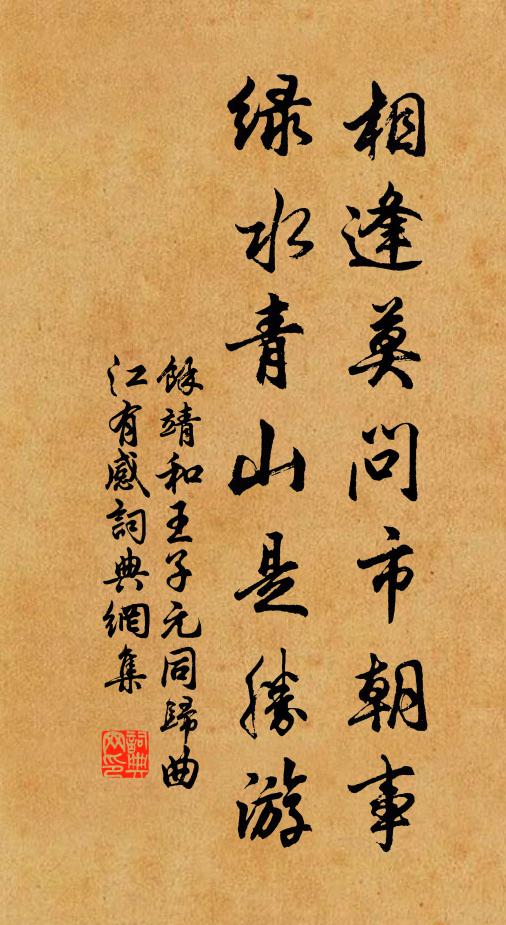 相逢莫问市朝事
绿水青山是胜游
馀靖和王子元同歸曲
江有感詞典網集
詞典
网印